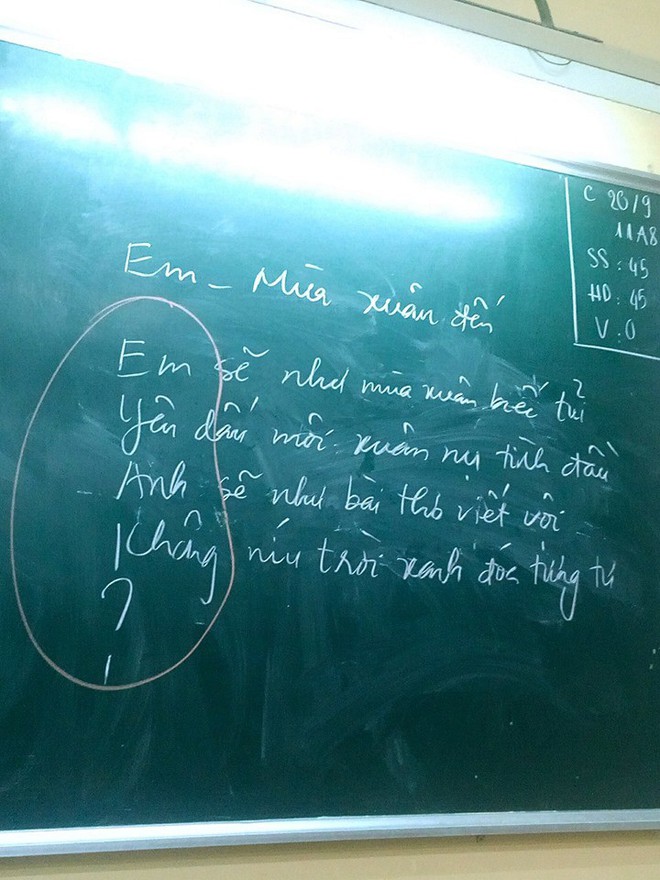 Em - Mùa xuân đến
Em sẽ như mùa xuân biếc tủi
Yên dấu môi xuân nụ tình đầu
Anh sẽ như bài thơ viết vội
Không níu trời xanh đóa từng tứ
?
C 20/9
11A8
SS: 45
HD: 45
V: 0